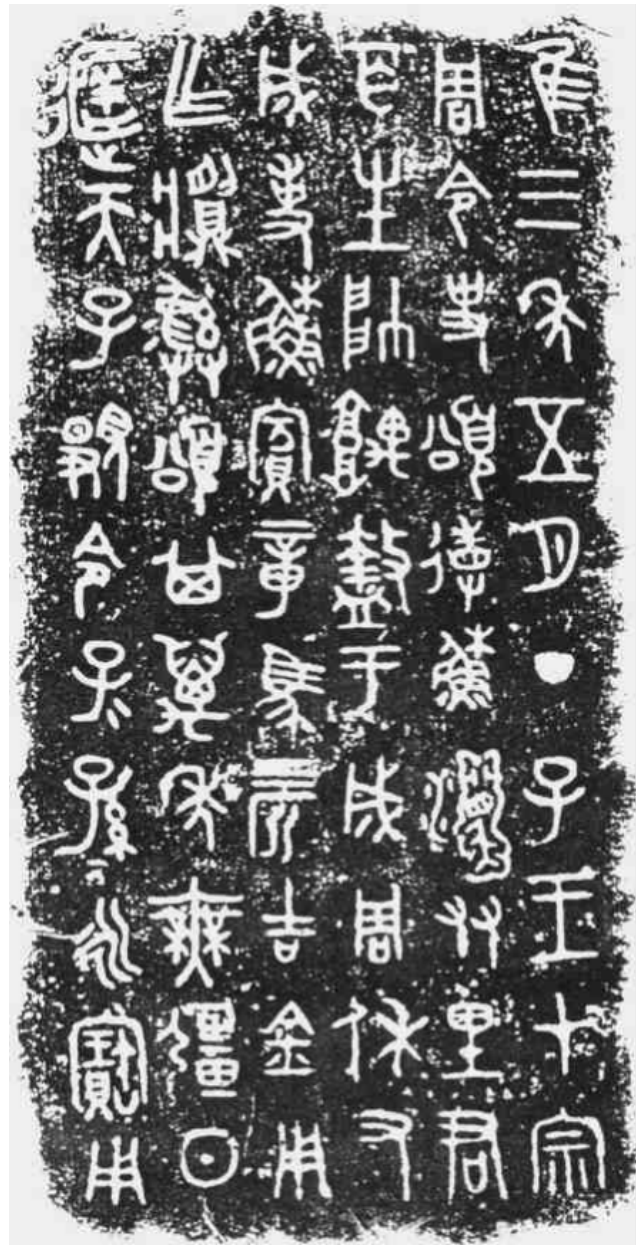 隹三年五月丁子王才宗
周令史頌省穌友里君
百生帥盩于成周休又
成事穌賓章馬四匹吉金用
乍䵼彝頌其萬年無疆日
天子顯令子=孫=永寶用